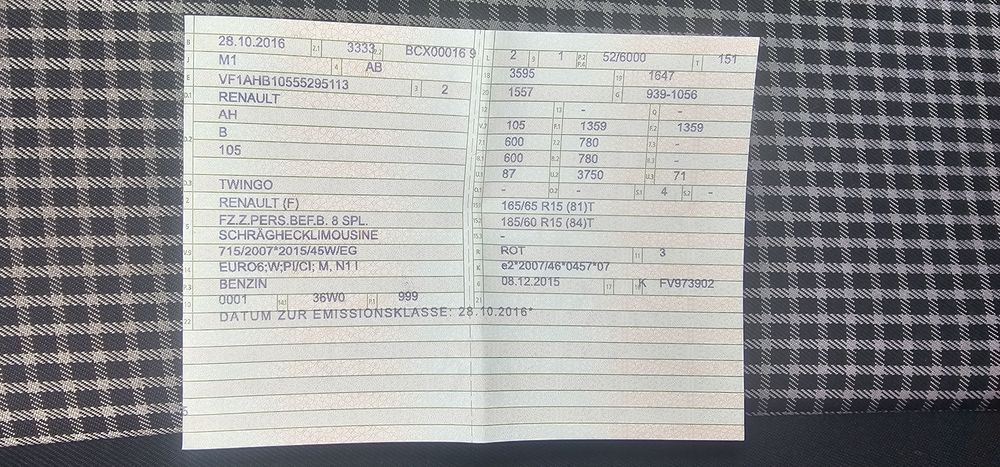 B 28.10.2016 2.1 3333 2.2 BCX00016 9
J M1 4 AB
E VF1AHB10555295113 3 2
D.1 RENAULT
AH
B
D.2 105
D.3 TWINGO
2 RENAULT (F)
5 FZ.Z.PERS.BEF.B. 8 SPL.
SCHRÄGHECKLIMOUSINE
V.9 715/2007*2015/45W/EG
14 EURO6;W;PI/CI; M, N1 I
P.3 BENZIN
10 0001 14.1 36W0 P.1 999
22 DATUM ZUR EMISSIONSKLASSE: 28.10.2016*
L 2 9 1 P.2 P.4 52/6000 T 151
18 3595 19 1647
20 1557 G 939-1056
12 - 13 - Q -
V.7 105 F.1 1359 F.2 1359
7.1 600 7.2 780 7.3 -
8.1 600 8.2 780 8.3 -
U.1 87 U.2 3750 U.3 71
O.1 - O.2 - S.1 4 S.2 -
15.1 165/65 R15 (81)T
15.2 185/60 R15 (84)T
15.3 -
R ROT 11 3
K e2*2007/46*0457*07
6 08.12.2015 17 K FV973902
21